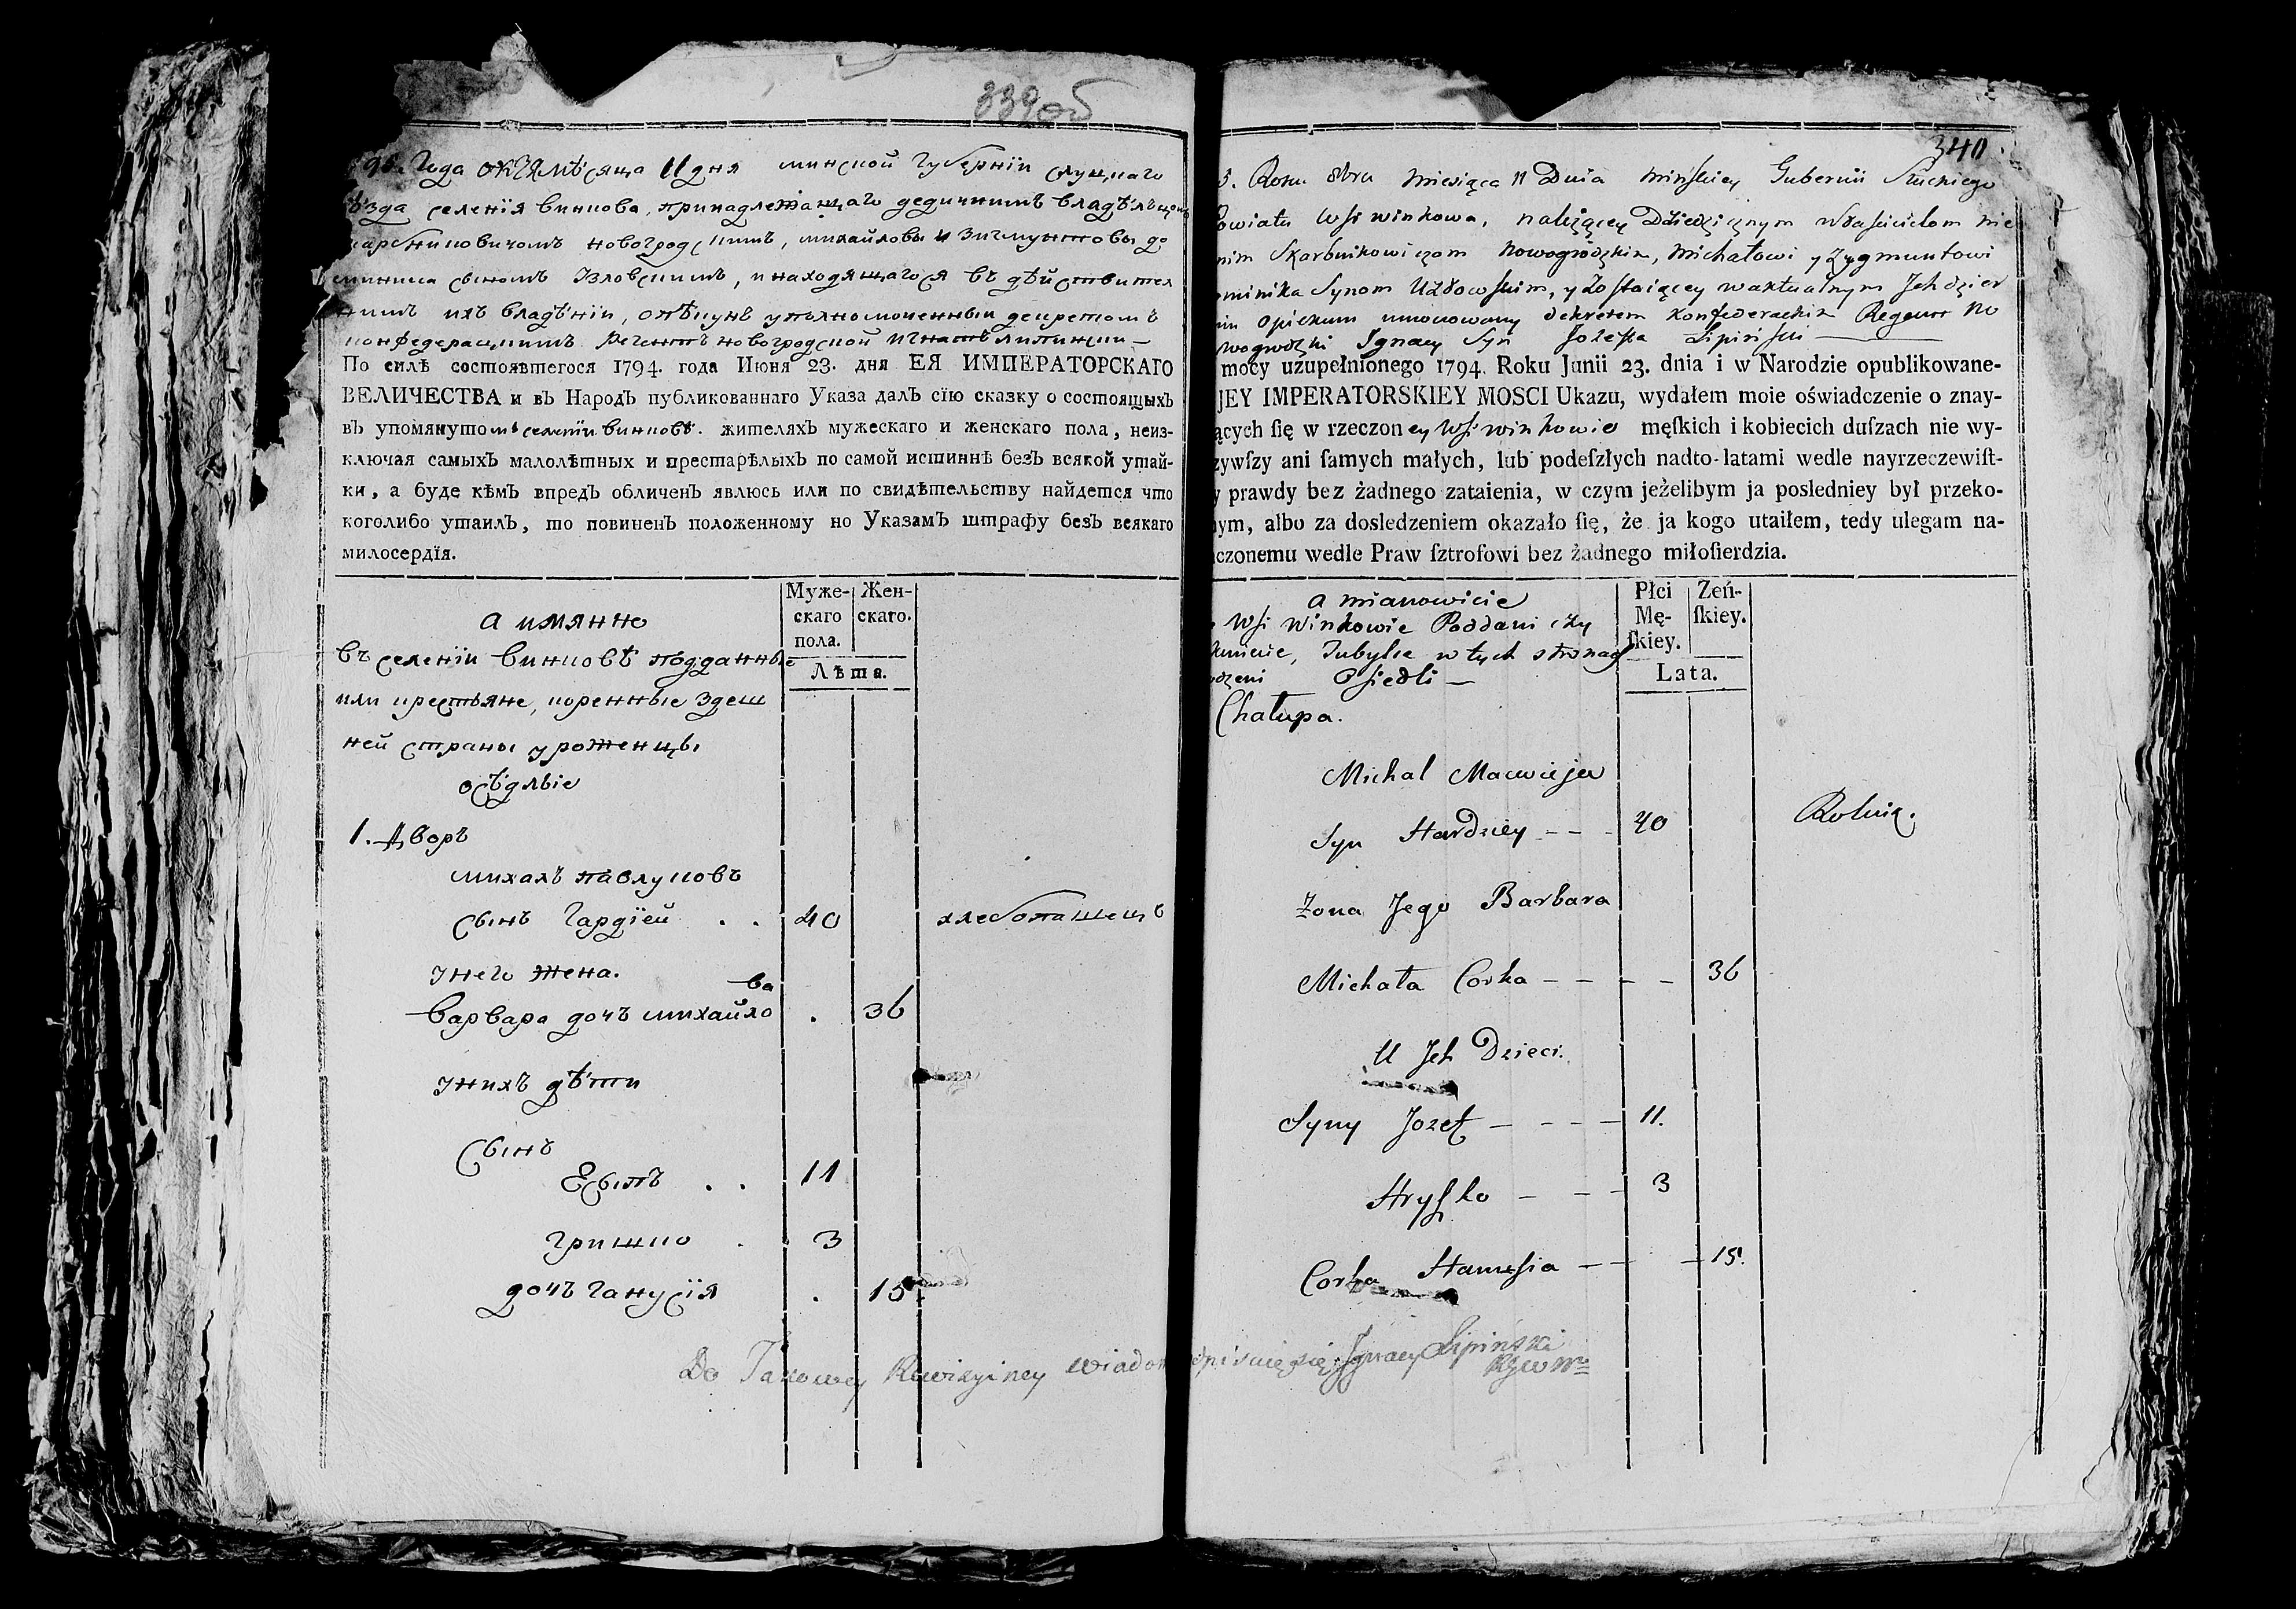 339 об
95. Года октя мѣсяца 11 дня минской Губернїи слуцкаго
ѣзда селенїя винкова, принадлежащаго дедичнимъ владѣльцомъ
карбниковичомъ новогродскимъ, михайловы и Зигмунтовы до
миника сыномъ Узловскимъ, и находящагося въ дѣйствител
нимъ ихъ владѣнїи, опѣкунъ уполномоченный декретомъ
конфедерацкимъ Регентъ новогродской Игнатъ липински —
По силѣ состоявшегося 1794. года Июня 23. дня ЕЯ ИМПЕРАТОРСКАГО
ВЕЛИЧЕСТВА и въ Народъ публикованнаго Указа далъ сїю сказку о состоящыхъ
въ упомянутомъ селенїи винковѣ. жителяхъ мужескаго и женскаго пола, неиз-
ключая самыхъ малолѣтных и престарѣлыхъ по самой истиннѣ безъ всякой утай-
ки, а буде кѣмъ впредъ обличенъ явлюсь или по свидѣтельству найдется что
коголибо утаилъ, то повиненъ положенному по Указамъ штрафу безъ всякаго
милосердїя.
а имянно
Муже-
скаго
пола.
Жен-
скаго.
Лѣта.
въ селенїи винковѣ подданные
или крестьяне, коренные здеш
ней страны уроженцы
осѣдлые
1. Дворъ
михалъ павлюковъ
сынъ Гардїей . . 40 хлебопашецъ
у него жена.
варвара дочъ михайло
ва . 36
у нихъ дѣти
Сынъ
Есыпъ . . 11
гришко . 3
дочъ ганусїя . 15
340.
5. Roku 8bra Miesiąca 11 Dnia Minſkiey Gubernii Słuckiego
owiatu Wsi Winkowa, należącey Dziedzicznym Właścicielom nie
nim Skarbnikowiczom Nowogródzkim, Michałowi y Zygmuntowi
ominika Synom Uzłowſkim, y zoſtaiącey w aktualnym Jch dzier
im Opiekun umocowany dekretem Konfederackim Regent No
wogrodzki Ignacy Syn Jozefa Lipińſki —
mocy uzupełnionego 1794. Roku Junii 23. dnia i w Narodzie opublikowane-
JEY IMPERATORSKIEY MOSCI Ukazu, wydałem moie oświadczenie o znay-
ących ſię w rzeczoney Wſi Winkowie męſkich i kobiecich duſzach nie wy-
zywſzy ani ſamych małych, lub podeſzłych nadto-latami wedle nayrzeczewiſt-
y prawdy bez żadnego zataienia, w czym jeżelibym ja posledniey był przeko-
ym, albo za dosledzeniem okazało ſię, że ja kogo utaiłem, tedy ulegam na-
czonemu wedle Praw ſztrofowi bez żadnego miłoſierdzia.
a mianowicie
Płci
Mę-
ſkiey.
Zeń-
ſkiey.
Lata.
Wſi Winkowie Poddani czy
w tych stronach
Osiedli —
Chałupa.
Michal Macwieja
Syn Hardziey - - - 40 Rolnik.
żona Jego Barbara
Michała Corka - - - - 36
U Jch Dzieci.
Syny Jozef - - - - 11.
Hryſzko - - - 3
Corka Hanuſia - - - 15.
Do Takowey Rewizyiney wiadom podpisuię się Ignacy Lipiński